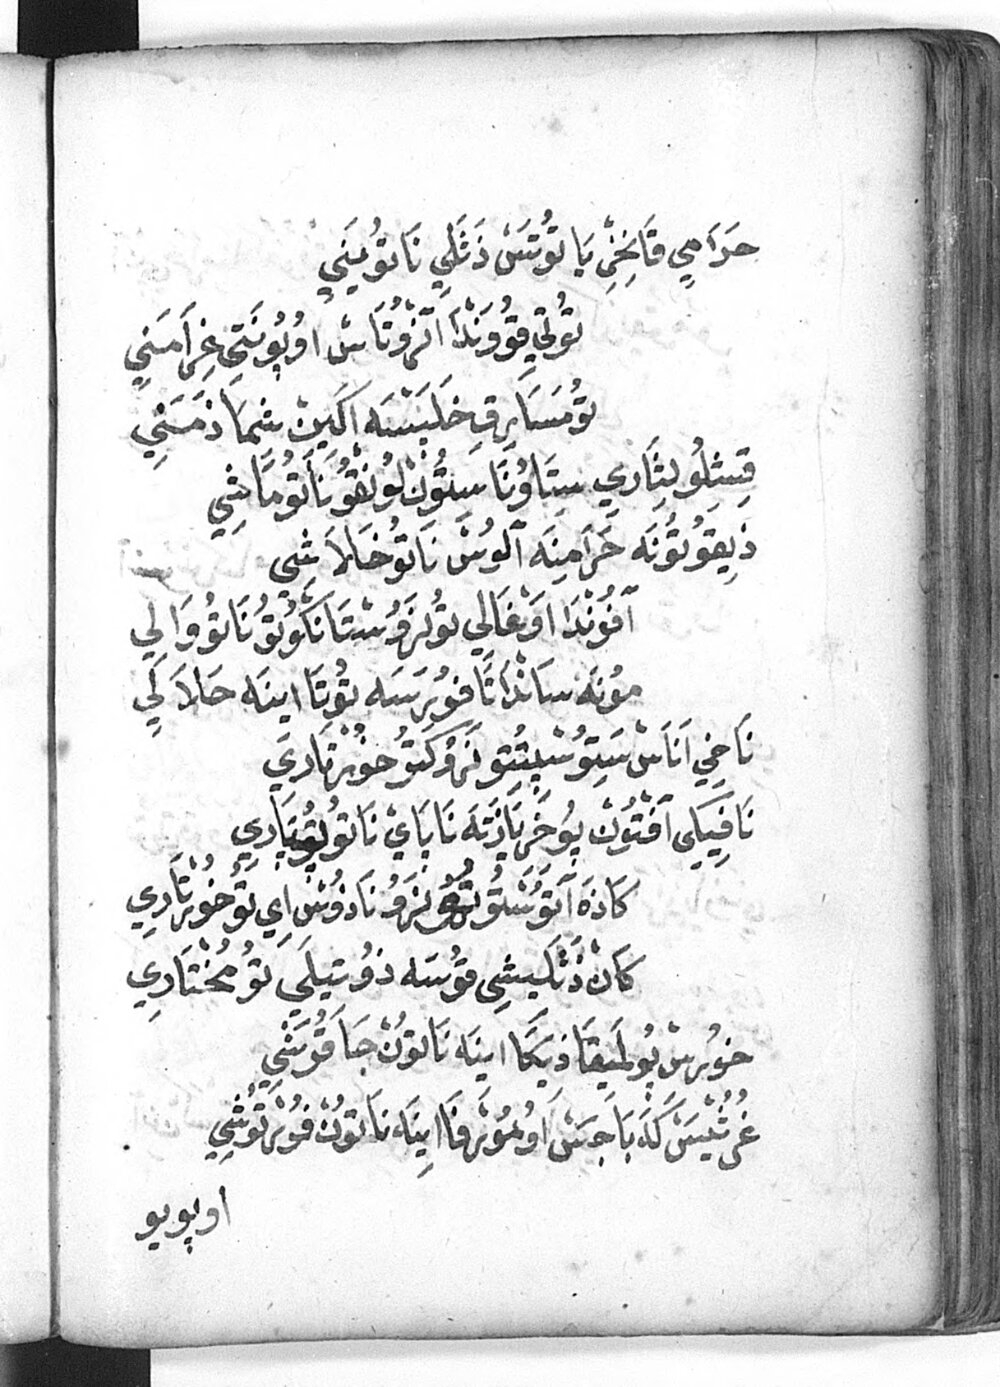 حَرَامِي قَاخِّي يَا تُوتَسْ ذَثَلِي نَاتُومَنِي
تُوتِي قُووَنْدَا آنْزُوتَاسْ اوُپُونَتَي غِرَامَنِي
تُومَسَارِقِ خَلَيَسَه اِكَينْ شِمَا ذَمَنِي
قِسِثِلُو لِثَارِي سِتَاوُنَا سِثُونْ لُونْقُونَاتُومَاشِي
ذِيقُوتُونَه حَرَامِنَه آلُوسْ نَاتُوخَالَاشِي
آفُونْدَا اَوْغَالِي تُونَرُوسْتَا نَكُوتُونَاتُووَالِي
مُونَه سَانْدَا تَافُورَسَه تُوتَا اينَه حَالَالِي
نَاخِي اَنَاسْ سَتُوسْپِتُتُو نَرُوكَتُوخُوزْتَارِي
نَافِيكِي آفْتُونْ پُوخَرِيَازَتَه نَابَايْ نَاتُو پُويَارِي
كَاذَه آتُوسَتُو نَرُونَاذُوسْ اَي تُوخُوزْتَارِي
كَانْ ذَثَكَيشِي قُوسَه ذُوسْتِيلَي تُومُخْتَارِي
خُوزِسْ پُولَيقَا ذِيكَا اينَه نَاتُونْ جَاقُوشَي
غْرُشَيسْ كَه بَاجَسْ اَوُمُورْفَا اينَه نَاتُونْ فُورْتُوشِي
اوپويو